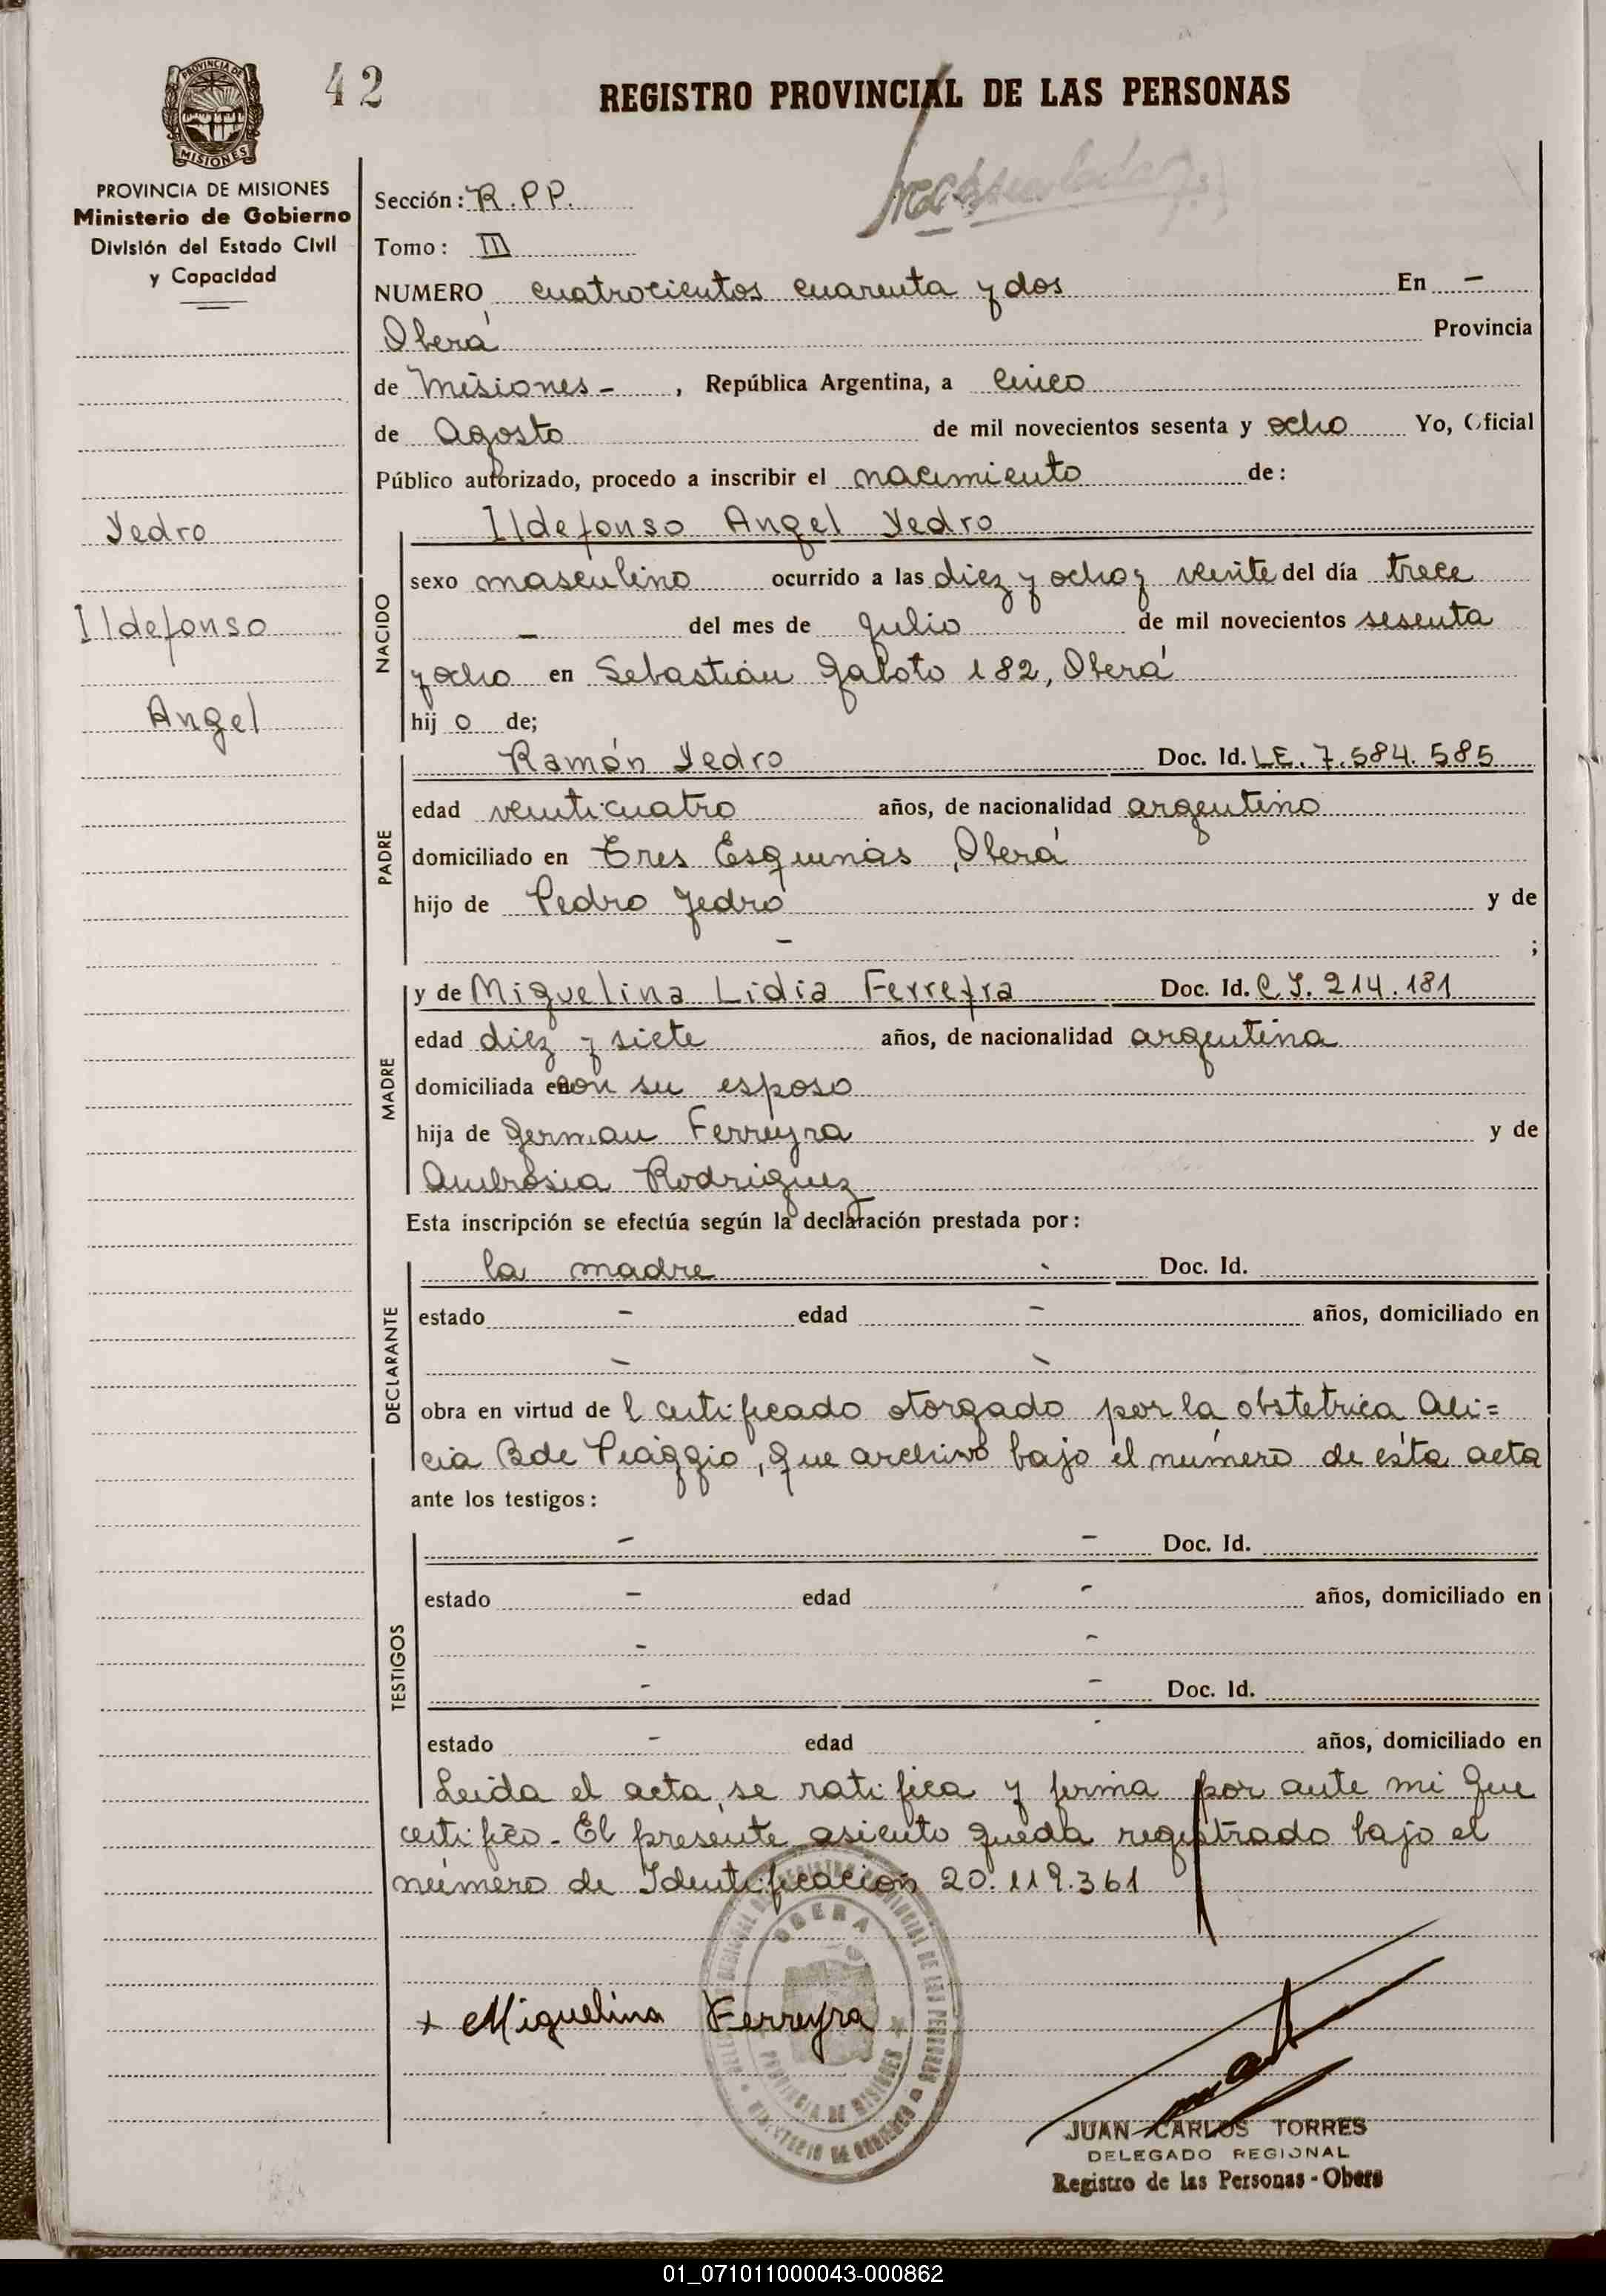 42
REGISTRO PROVINCIAL DE LAS PERSONAS
PROVINCIA DE
MISIONES
PROVINCIA DE MISIONES
Ministerio de Gobierno
División del Estado Civil
y Capacidad
Yedro
Ildefonso
Angel
Sección: R.PP.
Tomo: III
NUMERO cuatrocientos cuarenta y dos En -
Oberá Provincia
de Misiones - , República Argentina, a cinco
de Agosto de mil novecientos sesenta y ocho Yo, Oficial
Público autorizado, procedo a inscribir el nacimiento de:
Ildefonso Angel Yedro
NACIDO
sexo masculino ocurrido a las diez y ocho y veinte del día trece
- del mes de Julio de mil novecientos sesenta
y ocho en Sebastián Gaboto 182, Oberá
hij o de;
PADRE
Ramón Yedro Doc. Id. LE. 7.584.585
edad veinticuatro años, de nacionalidad argentino
domiciliado en Tres Esquinas, Oberá
hijo de Pedro Yedro y de
- ;
MADRE
y de Miguelina Lidia Ferreyra Doc. Id. C.I. 214.181
edad diez y siete años, de nacionalidad argentina
domiciliada en con su esposo
hija de German Ferreyra y de
Ambrosia Rodriguez
Esta inscripción se efectúa según la declaración prestada por:
DECLARANTE
la madre - Doc. Id.
estado - edad - años, domiciliado en
- -
obra en virtud de l certificado otorgado por la obstetrica Ali=
cia B de Piaggio, que archivo bajo el número de esta acta
ante los testigos:
TESTIGOS
- - Doc. Id.
estado - edad - años, domiciliado en
- -
- - Doc. Id.
estado - edad - años, domiciliado en
Leida el acta, se ratifica y firma por ante mi que
certifico - El presente asiento queda registrado bajo el
número de Identificación 20.119.361
OBERA
PROVINCIA DE MISIONES
MINISTERIO DE GOBIERNO
+ Miguelina Ferreyra
JUAN CARLOS TORRES
DELEGADO REGIONAL
Registro de las Personas - Obera
01_071011000043-000862